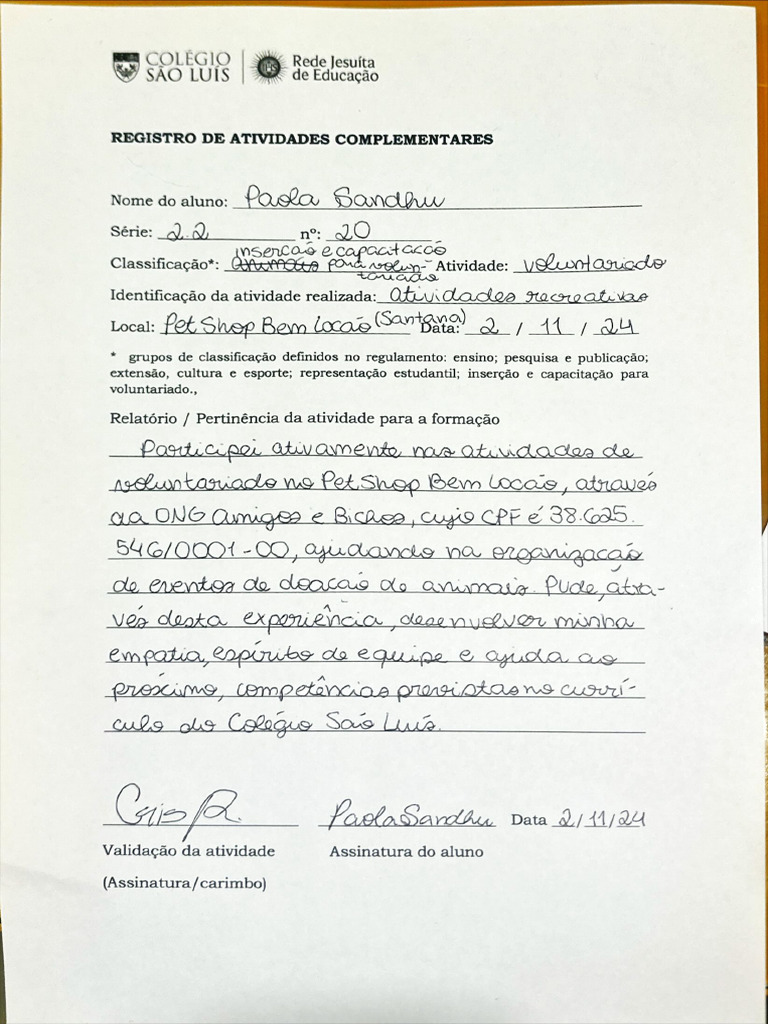 COLÉGIO SÃO LUÍS
Rede Jesuíta de Educação
REGISTRO DE ATIVIDADES COMPLEMENTARES
Nome do aluno: Paola Sandhu
Série: 2.2 nº: 20
Classificação*: inserção e capacitação para volun-tariado Atividade: voluntariado
Identificação da atividade realizada: atividades recreativas
Local: Pet Shop Bem Locão (Santana) Data: 2 / 11 / 24
* grupos de classificação definidos no regulamento: ensino; pesquisa e publicação;
extensão, cultura e esporte; representação estudantil; inserção e capacitação para
voluntariado.,
Relatório / Pertinência da atividade para a formação
Participei ativamente nas atividades de
voluntariado no Pet Shop Bem Locão, através
da ONG Amigos e Bichos, cujo CPF é 38.625.
546/0001-00, ajudando na organização
de eventos de doação de animais. Pude, atra-
vés desta experiência, desenvolver minha
empatia, espírito de equipe e ajuda ao
próximo, competências previstas no currí-
culo do Colégio São Luís.
Cris R.
Paola Sandhu Data 2/11/24
Validação da atividade Assinatura do aluno
(Assinatura/carimbo)